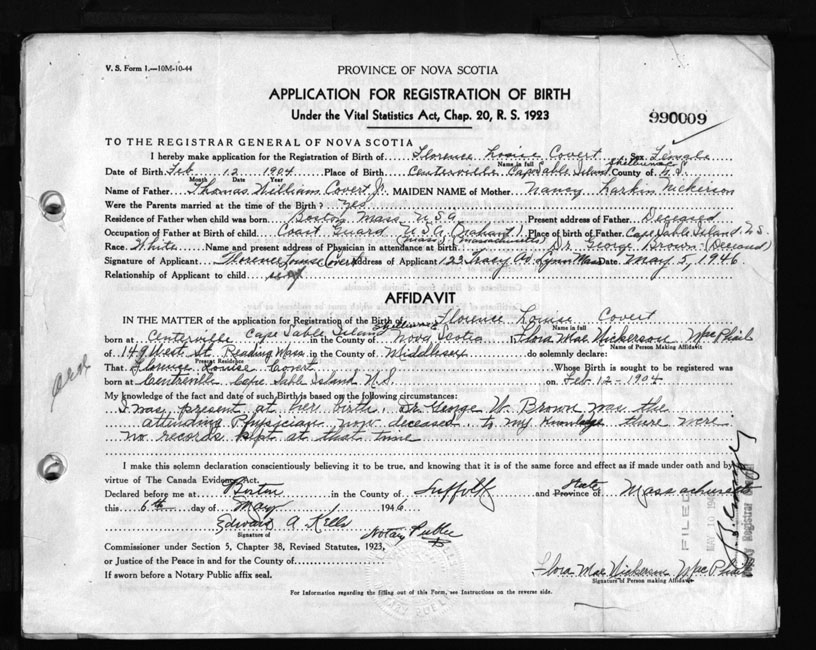 V. S. Form 1.—10M-10-44
PROVINCE OF NOVA SCOTIA
APPLICATION FOR REGISTRATION OF BIRTH
Under the Vital Statistics Act, Chap. 20, R. S. 1923
990009
TO THE REGISTRAR GENERAL OF NOVA SCOTIA
I hereby make application for the Registration of Birth of Florence Louise Covert Sex Female
Name in full
Date of Birth Feb 12 1904 Place of Birth Centerville Cape Sable Island County of N.S.
Month Date Year
Name of Father Thomas William Covert Jr. MAIDEN NAME of Mother Nancy Larkin Nickerson
Were the Parents married at the time of the Birth? Yes
Residence of Father when child was born Boston Mass. U.S.A. Present address of Father Deceased
Occupation of Father at Birth of child Coast Guard U.S.A. (Nahant) Place of Birth of Father Cape Sable Island N.S.
(Massachusetts)
Race White Name and present address of Physician in attendance at birth Dr. George Brown (Deceased)
Signature of Applicant Florence Louise Covert Address of Applicant 123 Tracy Av. Lynn Mass Date May 5, 1946
Relationship of Applicant to child self
AFFIDAVIT
IN THE MATTER of the application for Registration of the Birth of Florence Louise Covert
Name in full
born at Centerville Cape Sable Island in the County of Nova Scotia I, Flora Mae Nickerson MacPhail
Name of Person Making Affidavit
of 149 West St. Reading Mass in the County of Middlesex do solemnly declare:
Present Residence
That Florence Louise Covert Whose Birth is sought to be registered was
born at Centreville Cape Sable Island N.S. on Feb 12-1904
My knowledge of the fact and date of such Birth is based on the following circumstances:
I was present at her birth. Dr. George W. Brown was the
attending Physician now deceased. to my knowledge there were
no records kept at that time
I make this solemn declaration conscientiously believing it to be true, and knowing that it is of the same force and effect as if made under oath and by
virtue of The Canada Evidence Act.
Declared before me at Boston in the County of Suffolk and Province of State Massachusetts
this 6th day of May 1946
Edward A. Kells Notary Public
Signature of
Commissioner under Section 5, Chapter 38, Revised Statutes, 1923,
or Justice of the Peace in and for the County of
If sworn before a Notary Public affix seal.
Flora Mae Nickerson MacPhail
Signature of Person making Affidavit
For Information regarding the filling out of this Form, see Instructions on the reverse side.
FILED
MAY 10
Deputy Registrar General